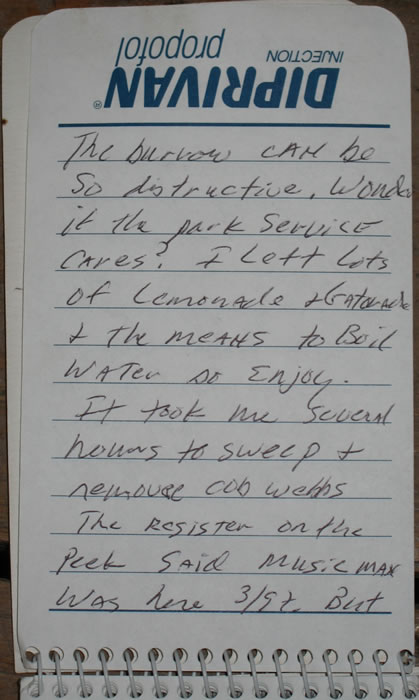 DIPRIVAN®
INJECTION propofol
The burrow CAN be
So distructive. Wonder
if the park Service
CAres? I Left Lots
of Lemonade & Gatorade
& the meANS to Boil
WATer so Enjoy.
It took me Several
hours to sweep &
remouve cob webbs
The Register on the
Peek SAid Music mAN
WAs here 3/97. But